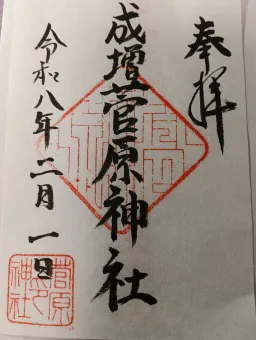 奉拝
成増菅原神社
令和八年二月一日